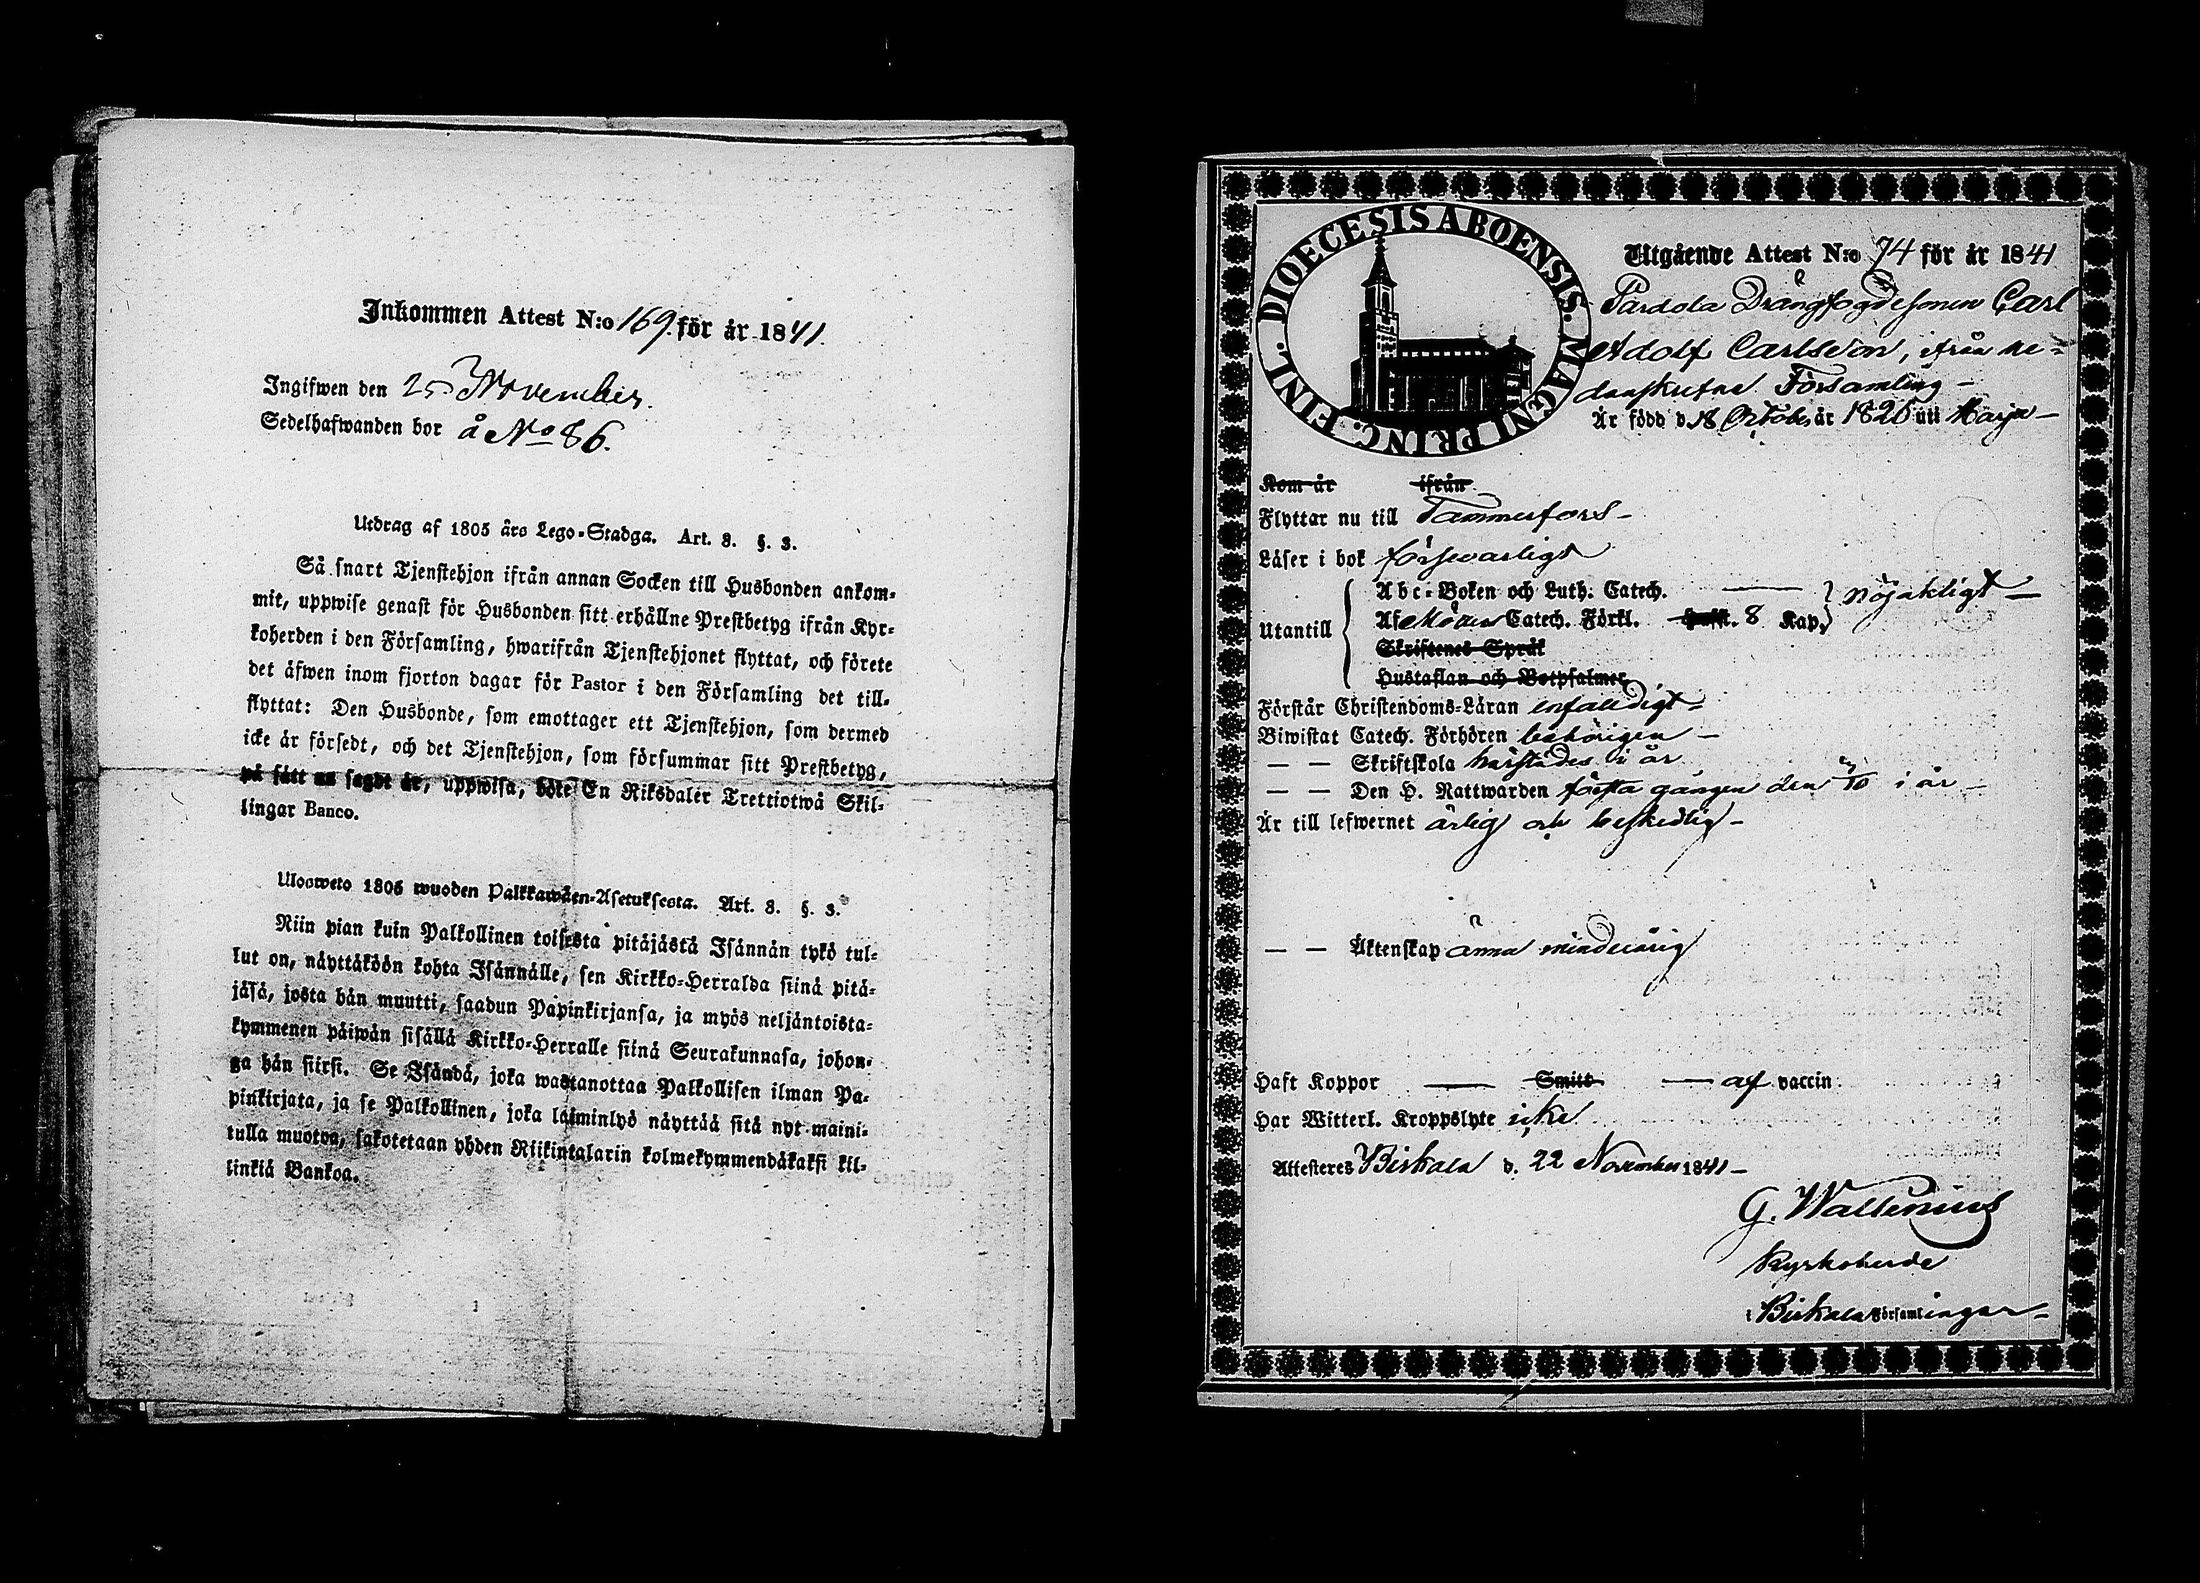 Inkommen Attest N:o 169. för år 1841.
Ingifwen den 25 November.
Sedelhafwanden bor å No 86.
Utdrag af 1805 års Lego-Stadga. Art. 8. §. 3.
Så snart Tjenstehjon ifrån annan Socken till Husbonden ankom-
mit, uppwise genast för Husbonden sitt erhållne Prestbetyg ifrån Kyr-
koherden i den Församling, hwarifrån Tjenstehjonet flyttat, och förete
det äfwen inom fjorton dagar för Pastor i den Församling det till-
flyttat: Den Husbonde, som emottager ett Tjenstehjon, som dermed
icke är försedt, och det Tjenstehjon, som försummar sitt Prestbetyg,
på sätt nu sagdt är, uppwisa, böte En Riksdaler Trettiotwå Skil-
lingar Banco.
Ulosweto 1805 wuoden Palkkawäen-Asetuksesta. Art. 8. §. 3.
Niin pian kuin Palkollinen toisesta pitäjästä Isännän tykö tul-
lut on, näyttäköön kohta Isännälle, sen Kirkko-Herralda siinä pitä-
jäsä, josta hän muutti, saadun Papinkirjansa, ja myös neljäntoista-
kymmenen päiwän sisällä Kirkko-Herralle siinä Seurakunnasa, johon-
ga hän siirsi. Se Isändä, joka wastanottaa Palkollisen ilman Pa-
pinkirjata, ja se Palkollinen, joka laiminlyö näyttää sitä nyt maini-
tulla muotoa, sakotetaan yhden Riikintalarin kolmekymmendäkaksi kil-
linkiä Bankoa.
DIOECESIS ABOENSIS. MAGNI PRINC. FINL.
Utgående Attest N:o 74 för år 1841
Pardola Drängfogdesonen Carl
Adolf Carlsson, ifrån ne-
danskrefne Församling
Är född d. 18 October år 1826 uti Harju
Kom år ifrån
Flyttar nu till Tammerfors
Läser i bok försvarligt
Utantill
Abc-Boken och Luth. Catech.
Af Möllers Catech. Förkl. 8 Kap. nöjaktigt
Skriftenes Språk
Hustaflan och Botpsalmer
Förstår Christendoms-Läran enfaldigt
Biwistat Catech. Förhören behörigen
— — Skriftskola härstädes i år
— — Den H. Nattwarden första gången den /10 i år
Är till lefwernet ärlig och beskedlig
— — Äktenskap ännu minderårig
Haft Koppor — Smitt — af vaccin
Har Witterl. Kroppslyte icke
Attesteres Birkala d. 22 November 1841
G. Wallenius
Kyrkoherde
i Birkala Församlingar